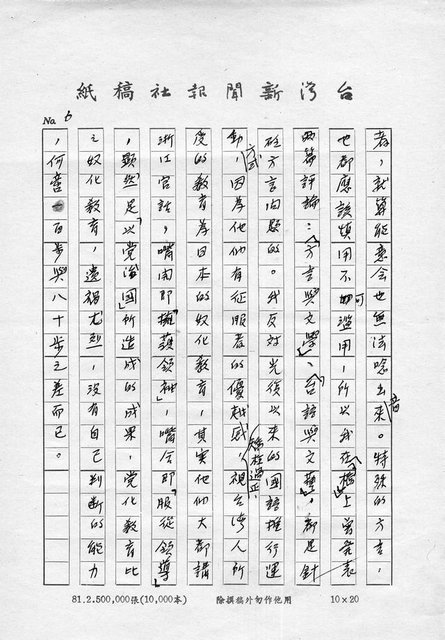 台灣新聞報社稿紙
No 6
者，就算能意會也無法唸出音來。特殊的方言，
也都應該慎用不可濫用，所以我在「橋」上曾發表
兩篇評論：「方言與文學」、「台語與文藝」。都是針
砭方言問題的。我反對光復以來的國語推行運
動方式，因為他們有征服者的優越感，矯枉過正，視台灣人所
受的教育為日本的奴化教育，其實他們大都講
浙江官話，嘴開即「擁護領袖」，嘴合即「服從領導」
，顯然是以「黨治國」所造成的成果，黨化教育比
之奴化教育，遺禍尤烈，沒有自己判斷的能力
，何啻百步與八十步之差而已。
81.2.500,000張(10,000本) 除撰稿外勿作他用 10×20